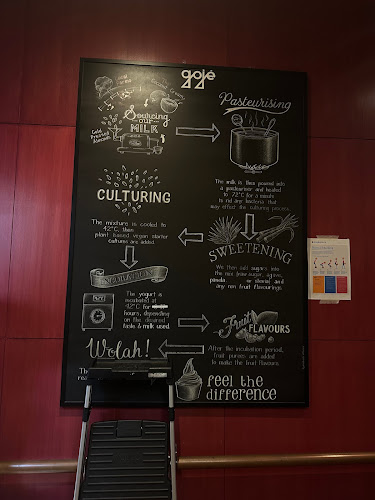 Sourcing
our
MILK
Cold Pressed
Almonds
Pasteurising
The milk is then poured into
a pasteuriser and heated
to 72°C for a minute
to rid any bacteria that
may effect the culturing process.
CULTURING
The mixture is cooled to
42°C, then
plant based vegan starter
cultures are added
SWEETENING
We then add sugars into
the mix (raw sugar, agave,
panela or stevia) and
any non fruit flavourings.
INCUBATION
The yogurt is
incubated at
42°C for
hours, depending
on the desired
taste & milk used.
Fruit FLAVOURS
After the incubation period,
fruit purees are added
to make the fruit flavours.
Wolah!
feel the
difference